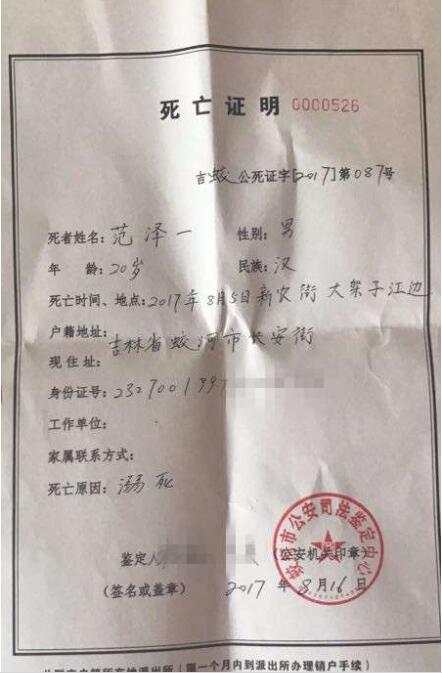 死亡证明 0000526
吉蛟公死证字[2017]第087号
死者姓名：范泽一 性别：男
年 龄：20岁 民族：汉
死亡时间、地点：2017年8月5日新农街大架子江边
户籍地址：
吉林省蛟河市长安街
现住址：
身份证号：2327001997
工作单位：
家属联系方式：
死亡原因：溺死
蛟河市公安司法鉴定中心
鉴定人 （公安机关印章）
（签名或盖章） 2017年8月16日
一个月内到派出所办理销户手续）